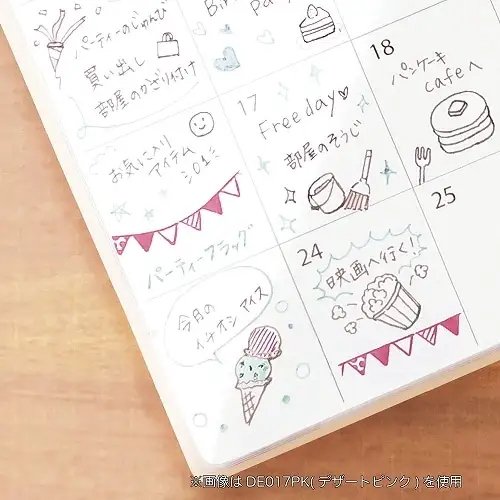 パーティーのじゅんび
買い出し
部屋のかざり付け
17
Free day
部屋のそうじ
18
パンケーキ
cafeへ
お気に入り
アイテム
01
パーティーフラッグ
24
映画へ行く!
25
今月の
イチオシ アイス
※画像は DE017PK( デザートピンク ) を使用